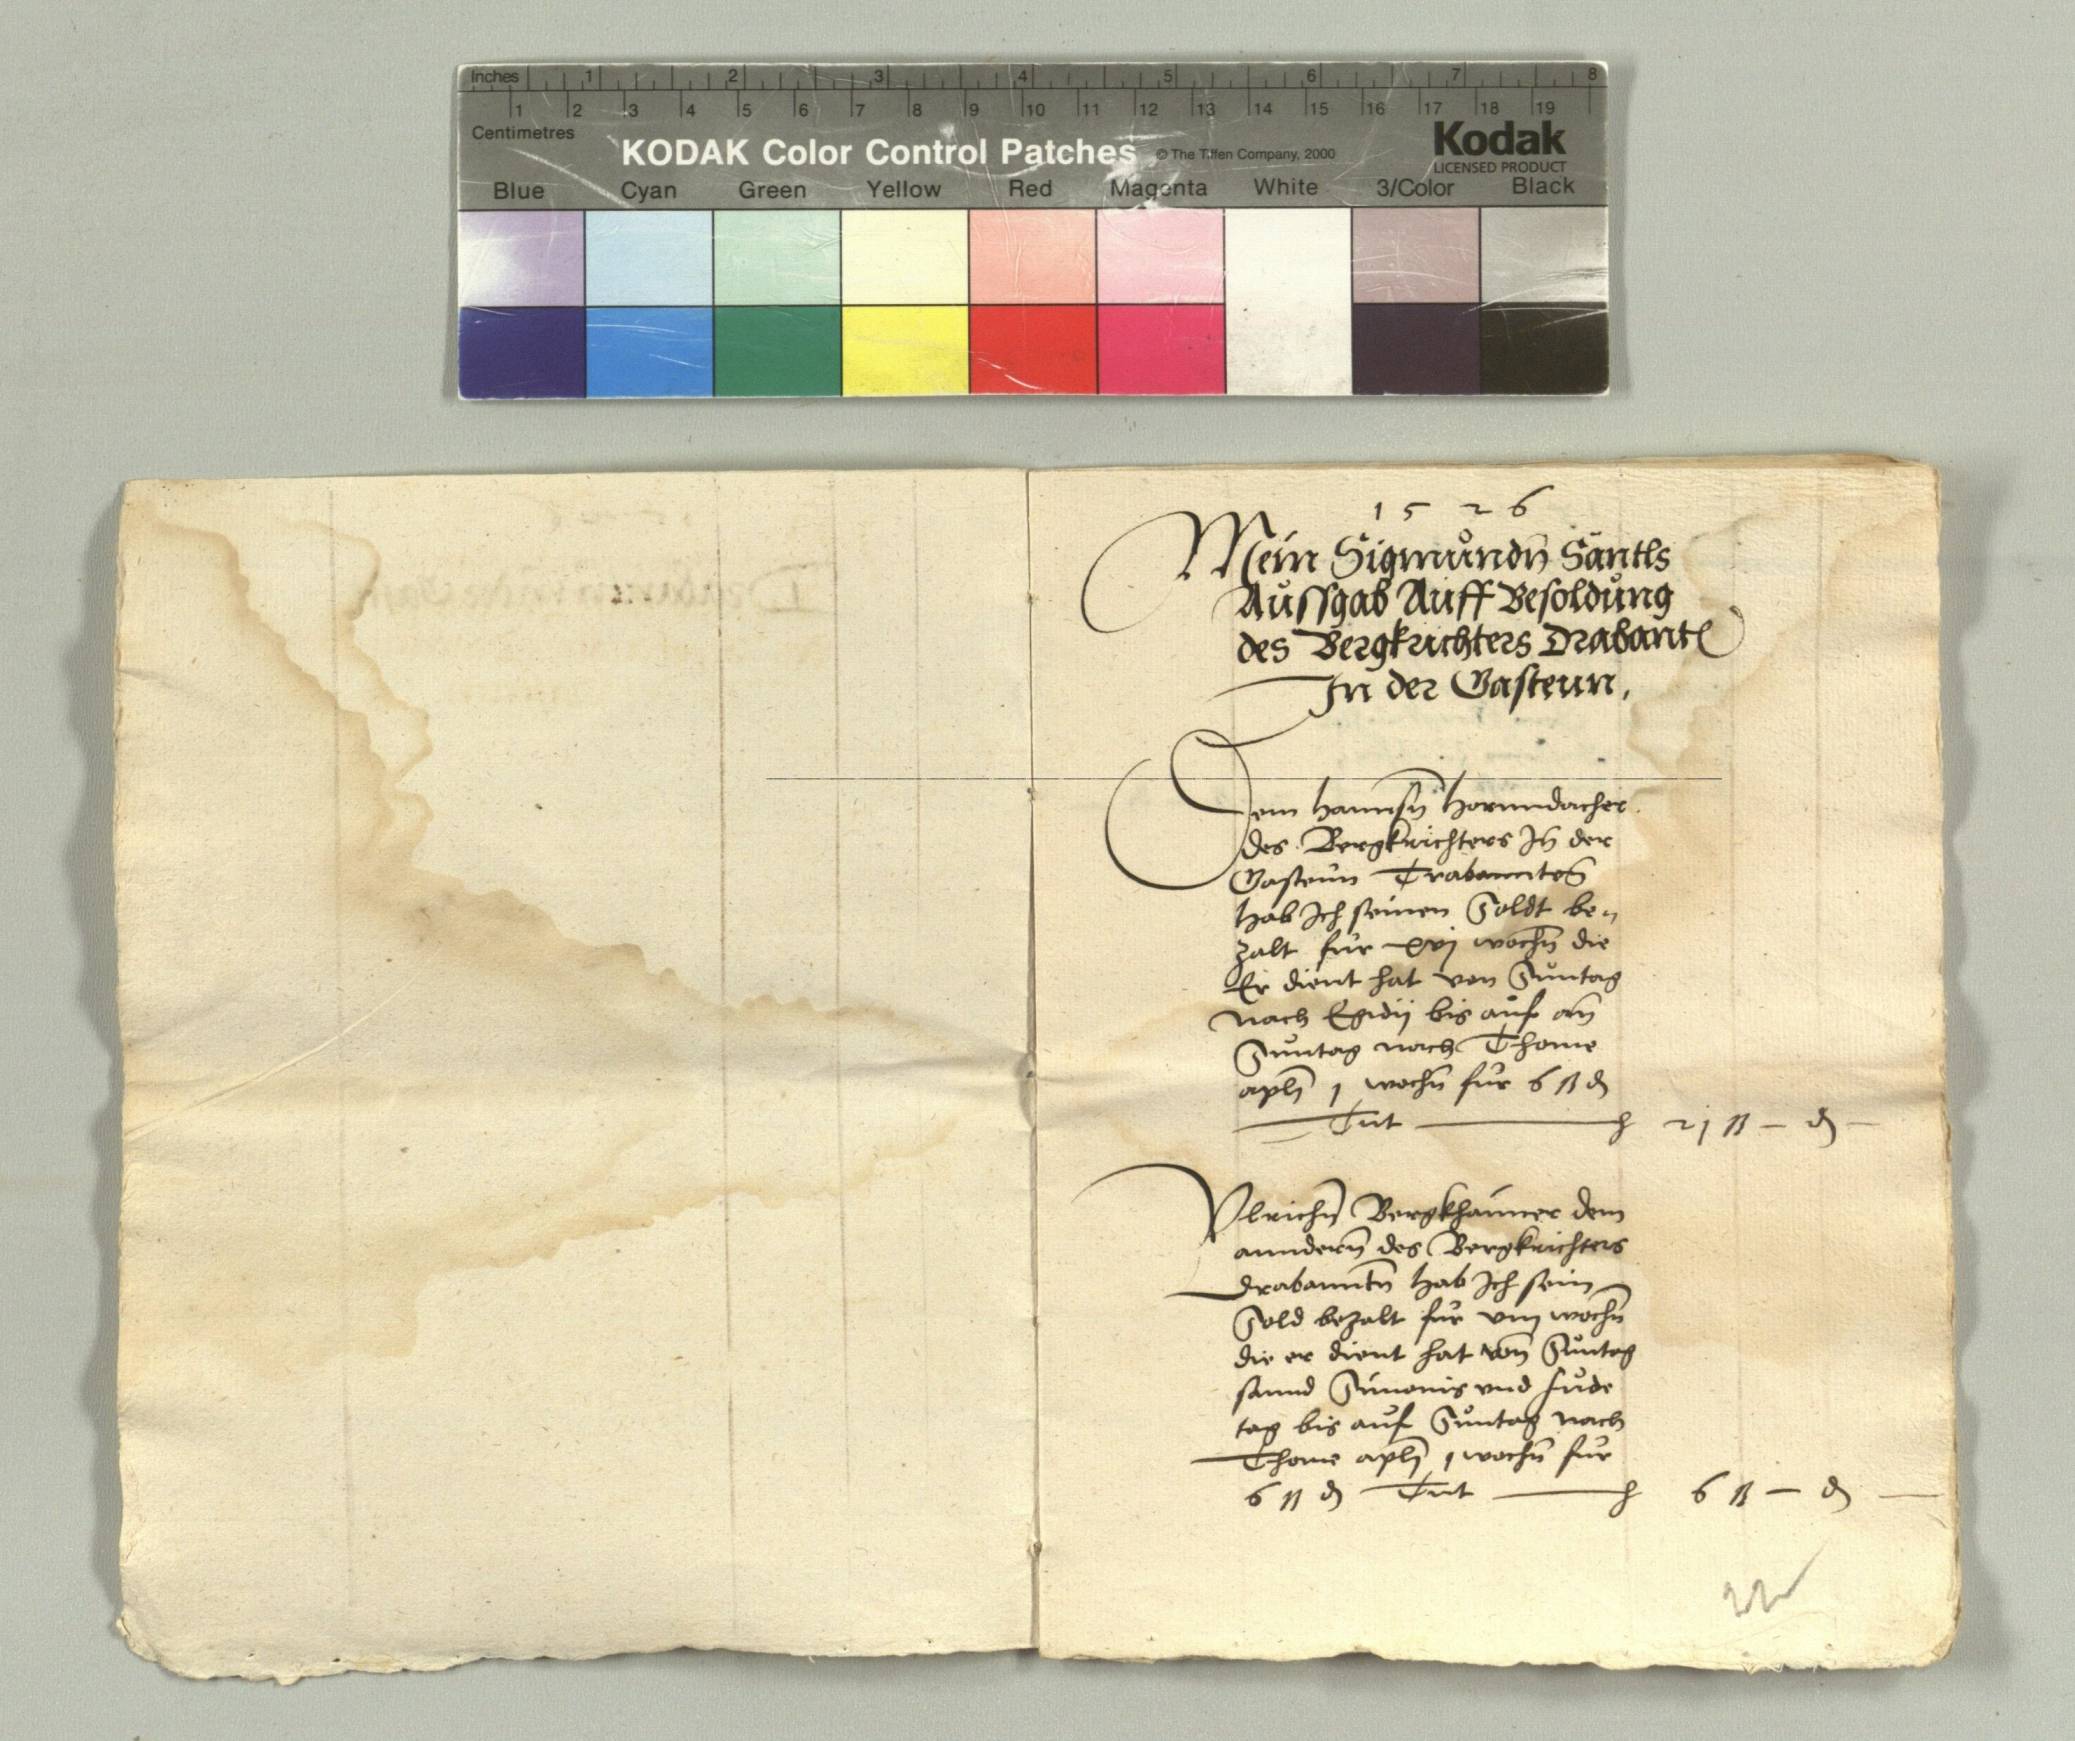 Inches 1 2 3 4 5 6 7 8
1 2 3 4 5 6 7 8 9 10 11 12 13 14 15 16 17 18 19
Centimetres
KODAK Color Control Patches © The Tiffen Company, 2000 Kodak
LICENSED PRODUCT
Blue Cyan Green Yellow Red Magenta White 3/Color Black
1526
Mein Sigmůndn̄ Säntls
Aůssgab Auff Besoldůng
des Bergkrichters Drabantn
In der Gasteun,
Dem Hannsn̄ Hornndacher
des Bergkrichters In der
Gasteůn Trabannten
hab Ich seinen Soldt be„
zalt für xvj wochn̄ die
Er dient hat von Sůntag
nach Egidij bis aůf an̄
Sůntag nach Thome
apl̄i 1 wochn̄ für 6 ß ₰
Tůt 21 ß — ₰ —
Vlrichn̄ Bergkhaimer dem
anndern̄ des Bergkrichters
drabanntn̄ hab Ich sein
Sold bezalt für viij wochn̄
die er dient hat von̄ Sůntag
sannd Simonis vnd Jude
tag bis aůf Sůntag nach
Thome apl̄i 1 wochn̄ für
6 ß ₰ Tůt 6 ß — ₰ —